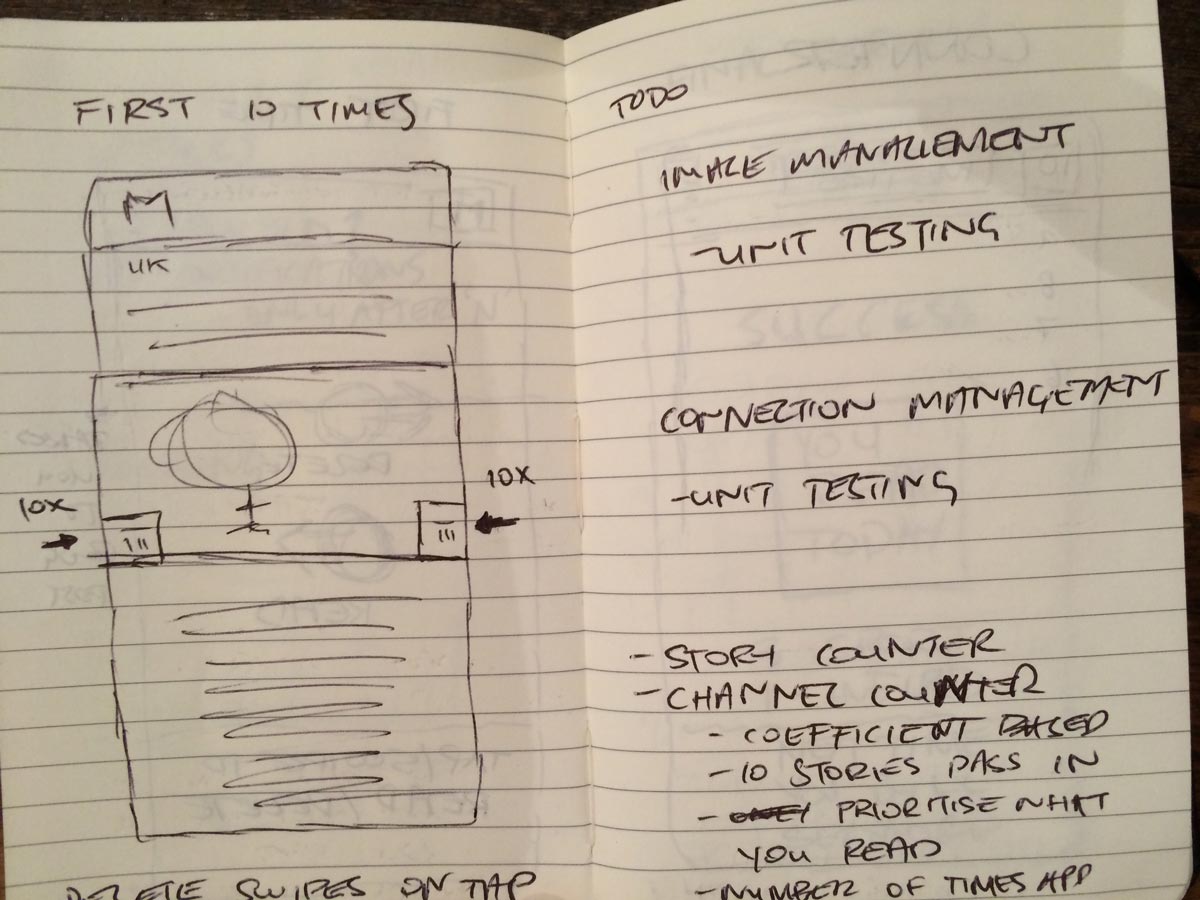 FIRST 10 TIMES
M
UK
10X
10X
DELETE SWIPES ON TAP
TODO
IMAGE MANAGEMENT
-UNIT TESTING
CONNECTION MANAGEMENT
-UNIT TESTING
- STORY COUNTER
- CHANNEL COUNTER
- COEFFICIENT BASED
- 10 STORIES PASS IN
- PRIORITISE WHAT
YOU READ
- NUMBER OF TIMES APP